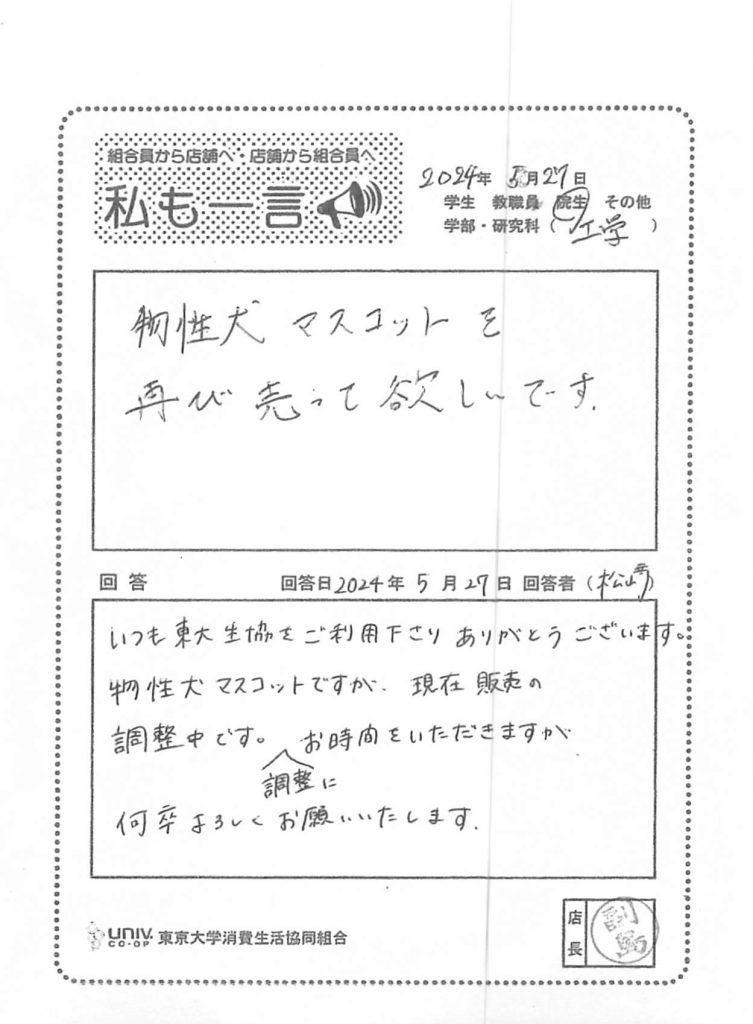 組合員から店舗へ・店舗から組合員へ
私も一言
2024年 5月27日
学生 教職員 院生 その他
学部・研究科（工学）
物性犬 マスコットを
再び売って欲しいです.
回答 回答日2024年5月27日 回答者（松崎）
いつも東大生協をご利用下さり ありがとうございます。
物性犬マスコットですが、現在販売の
調整中です。 お時間をいただきますが
調整に
何卒よろしくお願いいたします.
UNIV. CO-OP 東京大学消費生活協同組合
店長